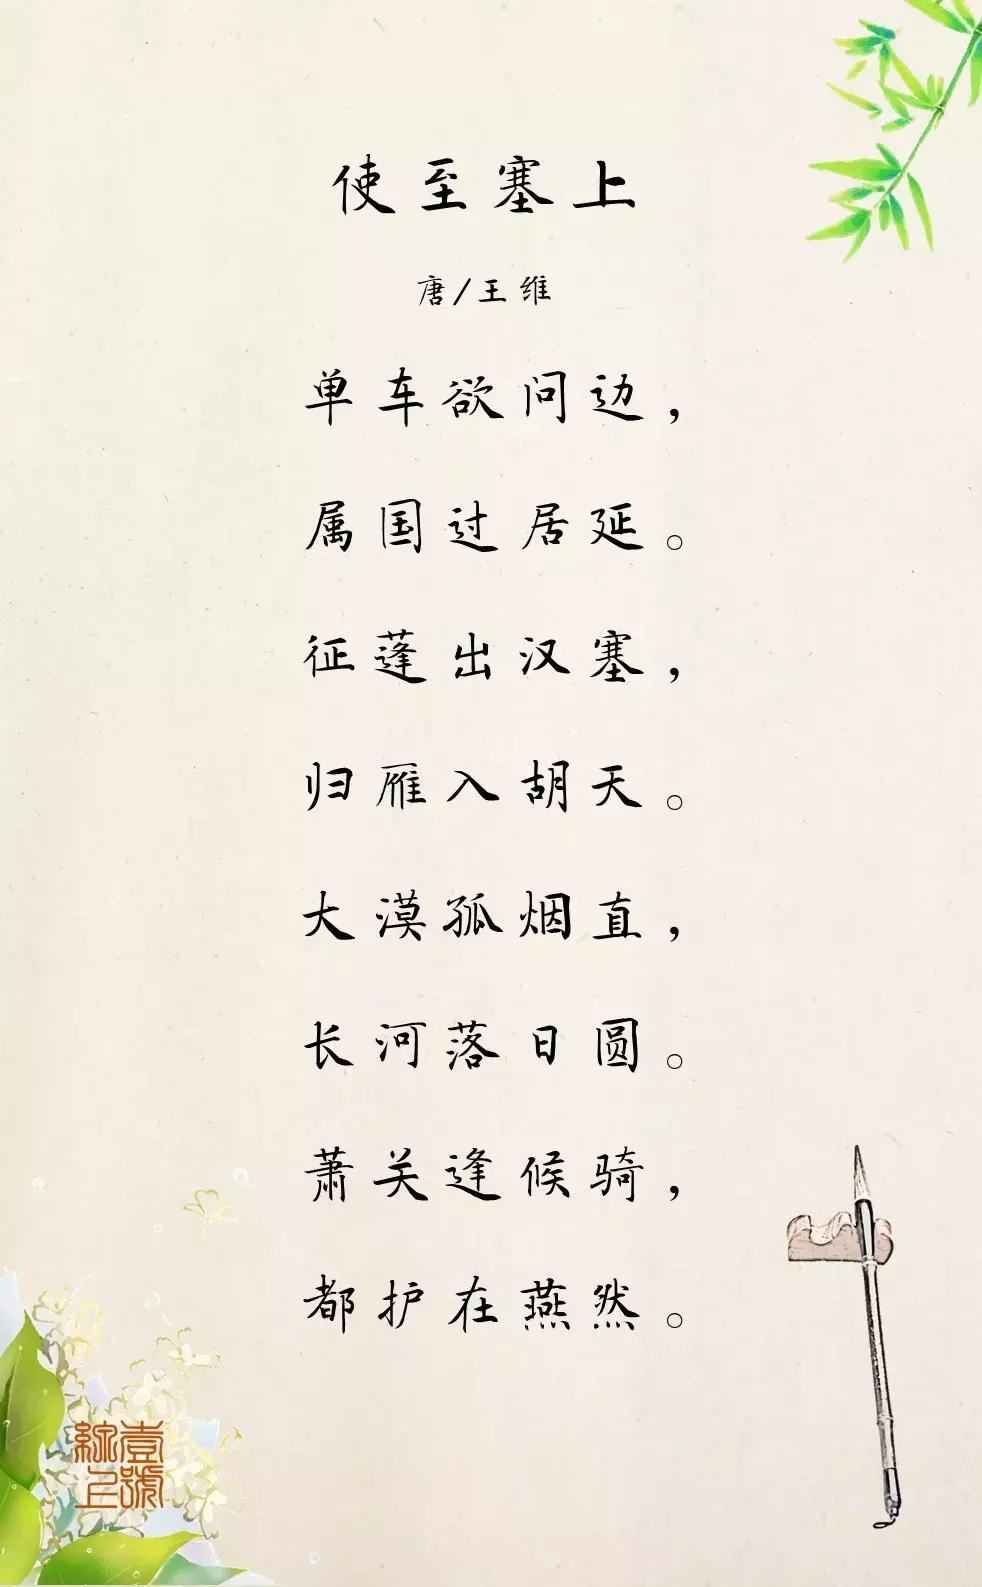 使至塞上
唐/王维
单车欲问边，
属国过居延。
征蓬出汉塞，
归雁入胡天。
大漠孤烟直，
长河落日圆。
萧关逢候骑，
都护在燕然。
壹號
綜上